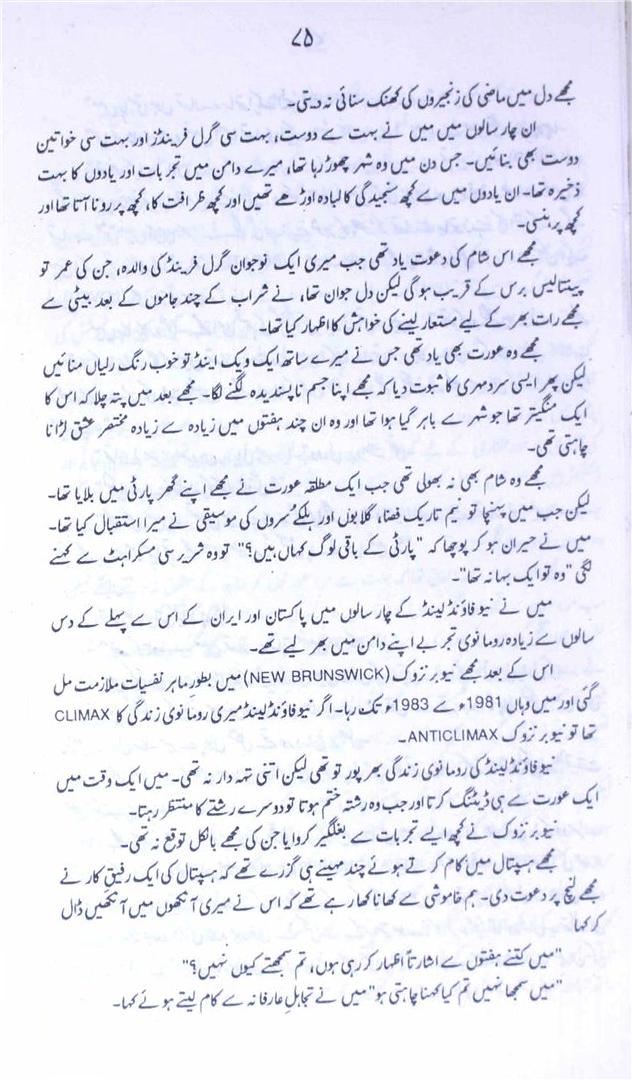 ۷۵
مجھے دل میں ماضی کی زنجیروں کی کھنک سنائی نہ دیتی۔
ان چار سالوں میں میں نے بہت سے دوست، بہت سی گرل فرینڈز اور بہت سی خواتین
دوست بھی بنائیں۔ جس دن میں وہ شہر چھوڑ رہا تھا، میرے دامن میں تجربات اور یادوں کا بہت
ذخیرہ تھا۔ ان یادوں میں سے کچھ سنجیدگی کا لبادہ اوڑھے تھیں اور کچھ ظرافت کا، کچھ پر رونا آتا تھا اور
کچھ پر ہنسی۔
مجھے اس شام کی دعوت یاد تھی جب میری ایک نوجوان گرل فرینڈ کی والدہ، جن کی عمر تو
پینتالیس برس کے قریب ہو گی لیکن دل جوان تھا، نے شراب کے چند جاموں کے بعد بیٹی سے
مجھے رات بھر کے لیے مستعار لینے کی خواہش کا اظہار کیا تھا۔
مجھے وہ عورت بھی یاد تھی جس نے میرے ساتھ ایک ویک اینڈ تو خوب رنگ رلیاں منائیں
لیکن پھر ایسی سرد مہری کا ثبوت دیا کہ مجھے اپنا جسم ناپسندیدہ لگنے لگا۔ مجھے بعد میں پتہ چلا کہ اس کا
ایک منگیتر تھا جو شہر سے باہر گیا ہوا تھا اور وہ ان چند ہفتوں میں زیادہ سے زیادہ مختصر عشق لڑانا
چاہتی تھی۔
مجھے وہ شام بھی نہ بھولی تھی جب ایک مطلقہ عورت نے مجھے اپنے گھر پارٹی میں بلایا تھا۔
لیکن جب میں پہنچا تو نیم تاریک فضا، گلابوں اور ہلکے سُروں کی موسیقی نے میرا استقبال کیا تھا۔
میں نے حیران ہو کر پوچھا کہ "پارٹی کے باقی لوگ کہاں ہیں؟" تو وہ شریر سی مسکراہٹ سے کہنے
لگی "وہ تو ایک بہانہ تھا"۔
میں نے نیو فاؤنڈ لینڈ کے چار سالوں میں پاکستان اور ایران کے اس سے پہلے کے دس
سالوں سے زیادہ رومانوی تجربے اپنے دامن میں بھر لیے تھے۔
اس کے بعد مجھے نیو برنزوک (NEW BRUNSWICK) میں بطورِ ماہر نفسیات ملازمت مل
گئی اور میں وہاں 1981ء سے 1983ء تک رہا۔ اگر نیو فاؤنڈ لینڈ میری رومانوی زندگی کا CLIMAX
تھا تو نیو برنزوک ANTICLIMAX۔
نیو فاؤنڈ لینڈ کی رومانوی زندگی بھر پور تو تھی لیکن اتنی تہہ دار نہ تھی۔ میں ایک وقت میں
ایک عورت سے ہی ڈیٹنگ کرتا اور جب وہ رشتہ ختم ہوتا تو دوسرے رشتے کا منتظر رہتا۔
نیو برنزوک نے کچھ ایسے تجربات سے بغلگیر کروایا جن کی مجھے بالکل توقع نہ تھی۔
مجھے ہسپتال میں کام کرتے ہوئے چند مہینے ہی گزرے تھے کہ ہسپتال کی ایک رفیقِ کار نے
مجھے لنچ پر دعوت دی۔ ہم خاموشی سے کھانا کھا رہے تھے کہ اس نے میری آنکھوں میں آنکھیں ڈال
کر کہا
"میں کتنے ہفتوں سے اشارتاً اظہار کر رہی ہوں، تم سمجھتے کیوں نہیں؟"
"میں سمجھا نہیں تم کیا کہنا چاہتی ہو" میں نے تجاہلِ عارفانہ سے کام لیتے ہوئے کہا۔